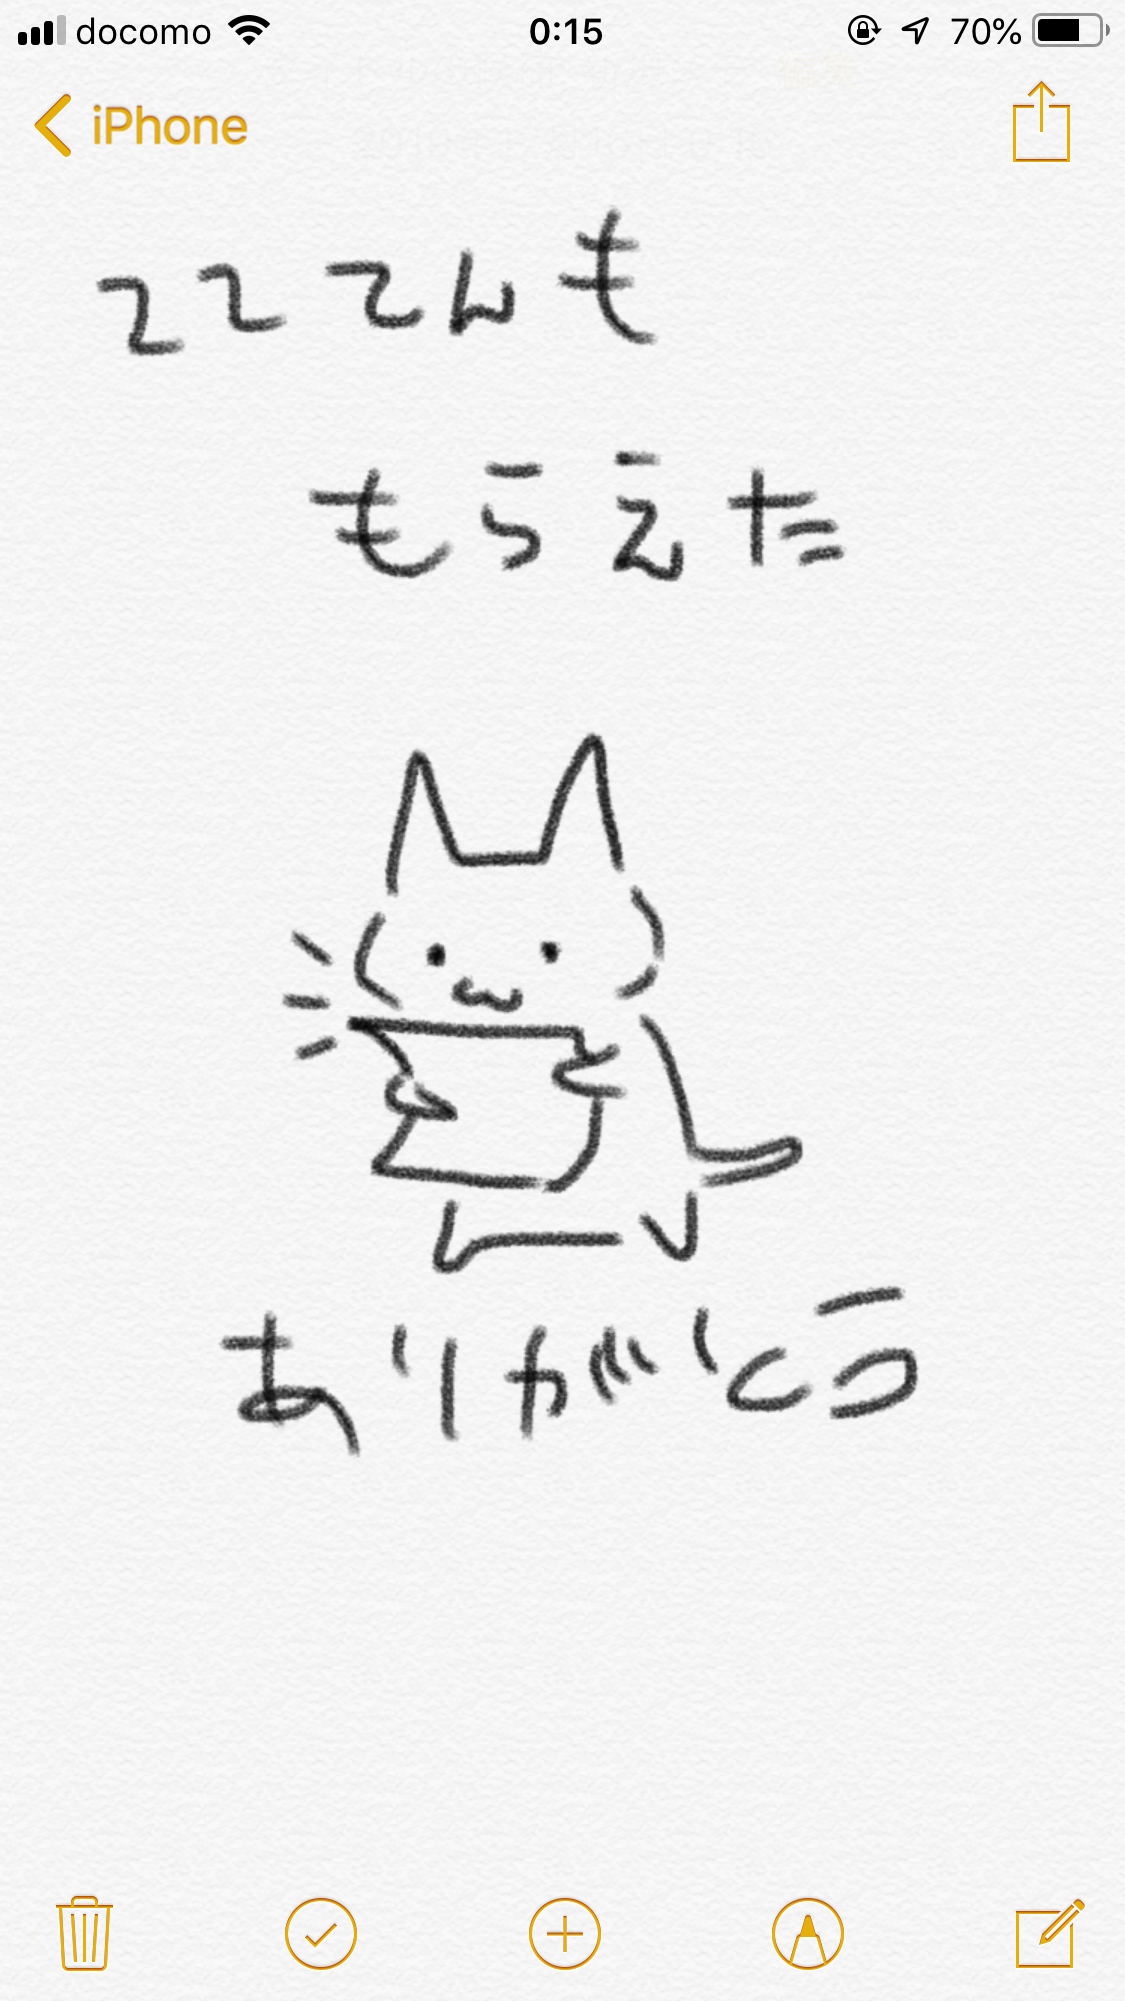 docomo 0:15 70%
iPhone
222てんも
もらえた
ありがとう